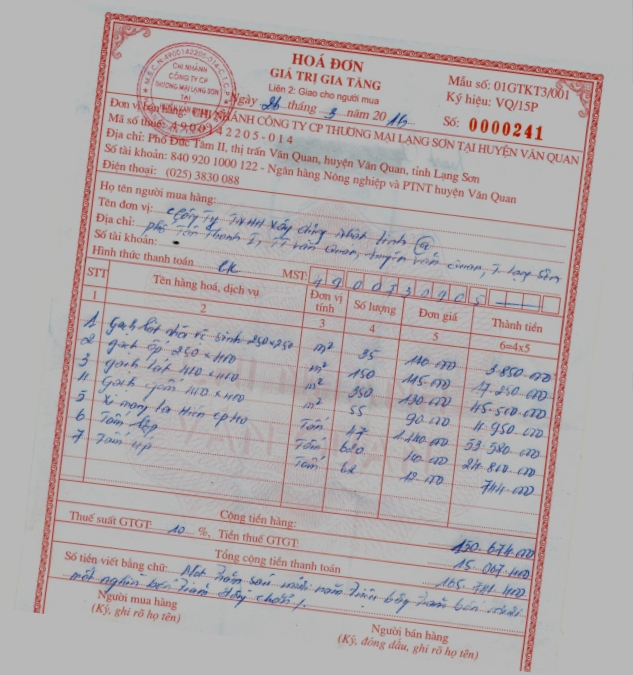 HOÁ ĐƠN
GIÁ TRỊ GIA TĂNG
Liên 2: Giao cho người mua
Ngày 26 tháng 3 năm 2016
Mẫu số: 01GTKT3/001
Ký hiệu: VQ/15P
Số: 0000241
CHI NHÁNH
CÔNG TY CP
THƯƠNG MẠI LẠNG SƠN
TẠI
Đơn vị bán hàng: CHI NHÁNH CÔNG TY CP THƯƠNG MẠI LẠNG SƠN TẠI HUYỆN VĂN QUAN
Mã số thuế: 4900142205-014
Địa chỉ: Phố Đức Tâm II, thị trấn Văn Quan, huyện Văn Quan, tỉnh Lạng Sơn
Số tài khoản: 840 920 1000 122 - Ngân hàng Nông nghiệp và PTNT huyện Văn Quan
Điện thoại: (025) 3830 088
Họ tên người mua hàng:
Tên đơn vị: Công ty TNHH xây dựng
Địa chỉ: phố Tân Thanh I, TT văn quan, huyện văn quan, T. Lạng Sơn
Số tài khoản:
Hình thức thanh toán CK MST: 4900330905
STT Tên hàng hoá, dịch vụ Đơn vị tính Số lượng Đơn giá Thành tiền
1 2 3 4 5 6=4x5
1 gạch lát vệ sinh 250×250 m² 35 110.000 3.850.000
2 gạch ốp 250×400 m² 150 115.000 17.250.000
3 gạch lát 400×400 m² 350 130.000 45.500.000
4 Gạch gốm 400×400 m² 55 90.000 4.950.000
5 Xi măng 47 1.140.000 53.580.000
6 Tấm Tấm 620 40.000 24.800.000
7 Tấm úp Tấm 62 12.000 744.000
Cộng tiền hàng: 150.674.000
Thuế suất GTGT: 10 %, Tiền thuế GTGT: 15.067.400
Tổng cộng tiền thanh toán 165.741.400
Số tiền viết bằng chữ: Một trăm sáu mươi năm triệu bảy trăm bốn mươi
một nghìn bốn trăm đồng chẵn
Người mua hàng
(Ký, ghi rõ họ tên)
Người bán hàng
(Ký, đóng dấu, ghi rõ họ tên)